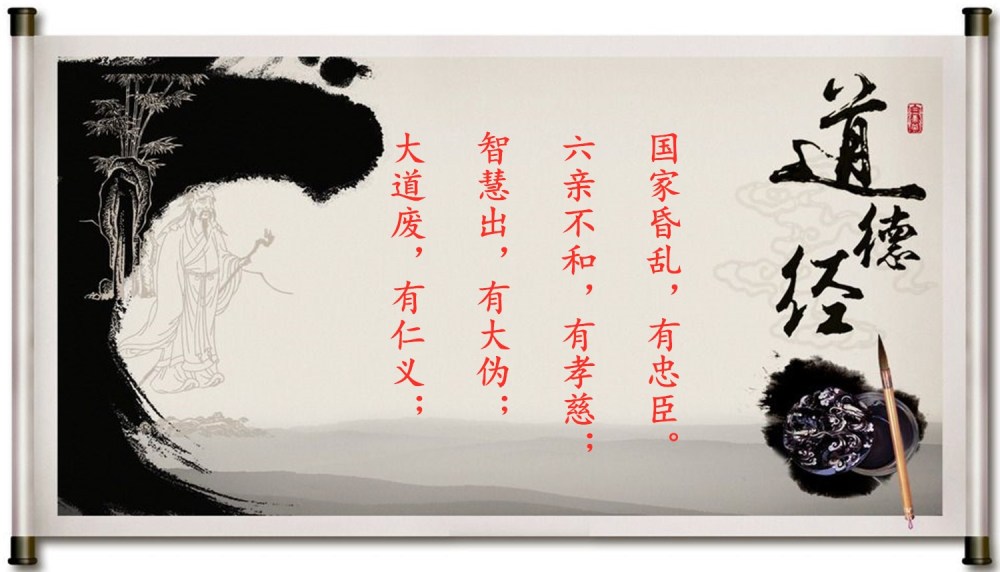 道德经
大道废，有仁义；
智慧出，有大伪；
六亲不和，有孝慈；
国家昏乱，有忠臣。